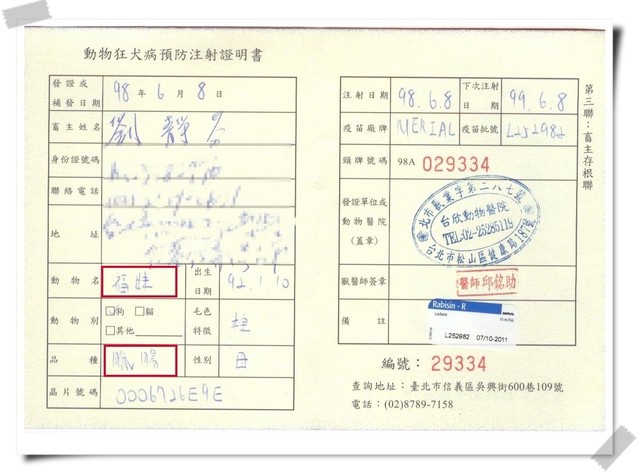 動物狂犬病預防注射證明書
發證或補發日期 98年6月8日
畜主姓名 劉靜
身份證號碼
聯絡電話
地址
動物名 福娃 出生日期 92.1.10
動物別 狗 貓 其他 毛色特徵
品種 臘腸 性別 母
晶片號碼 0006726E9E
注射日期 98.6.8 下次注射日期 99.6.8
疫苗廠牌 MERIAL 疫苗批號 L252982
頸牌號碼 98A 029334
發證單位或動物醫院(蓋章)
北市獸業字第二八七號
台欣動物醫院
TEL:02-25285119
台北市松山區健康路187號
獸醫師簽章 醫師邱銘助
備註
Rabisin - R
L252982 07/10-2011
編號:29334
查詢地址:臺北市信義區吳興街600巷109號
電話:(02)8789-7158
第三聯:畜主存根聯